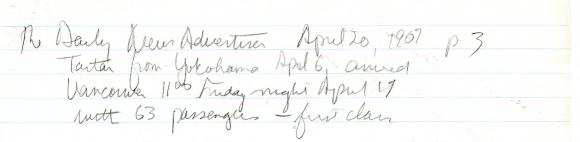 The Daily News Advertiser April 20, 1907 p 3
Tartar from Yokohama April 6, arrived
Vancouver 11⁰⁰ Friday night April 19
with 63 passengers – first class